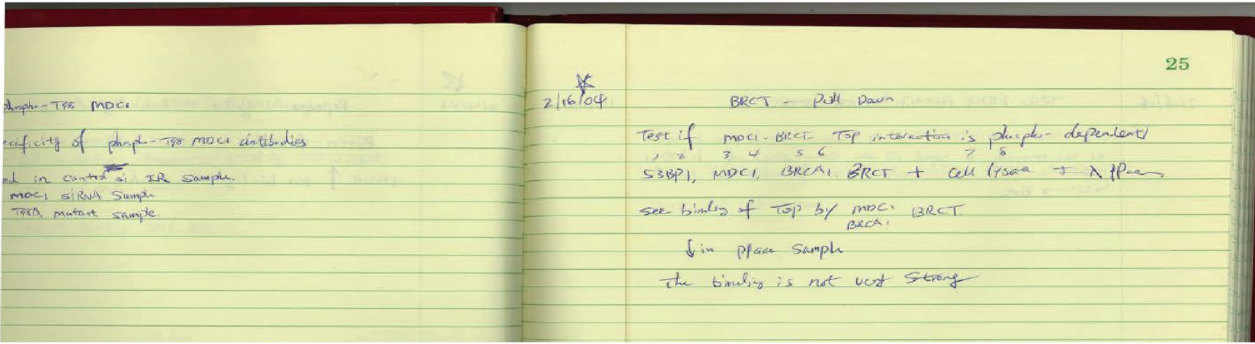 phosph-T98 MDC1
ecificity of phosph-T98 MDC1 antibodies
ed in control si IR sample.
MDC1 siRNA Sample
T98A mutant sample
25
2/16/04
BRCT - Pull Down
Test if MDC1-BRCT Top interaction is phospho-dependent
1 2 3 4 5 6 7 8
53BP1, MDC1, BRCA1 BRCT + Cell lysate + λ
see binding of Top by MDC1 BRCT
BRCA1
↓ in ppase Sample
The binding is not very strong